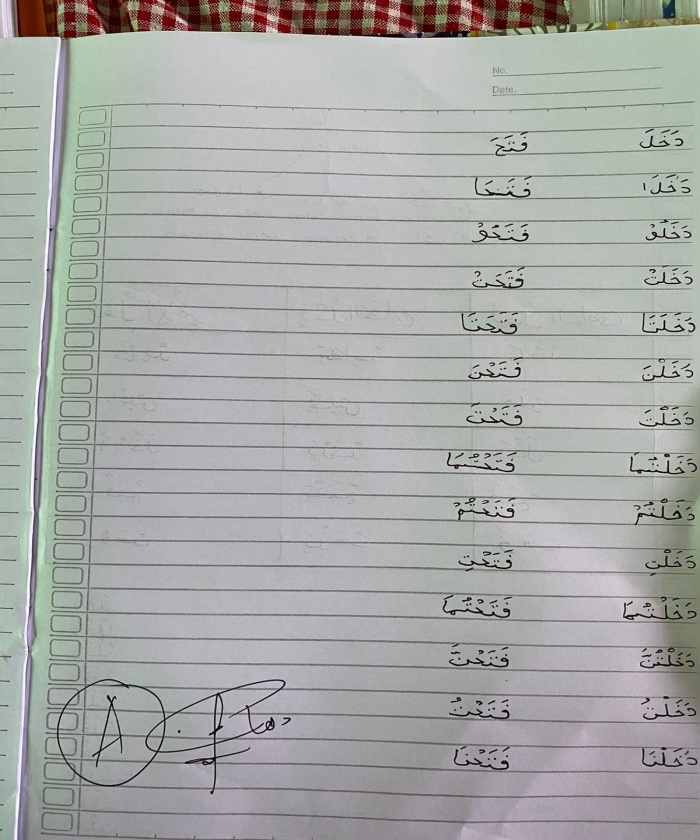 No.
Date.
دَخَلَ فَتَحَ
دَخَلَا فَتَحَا
دَخَلُوْ فَتَحُوْ
دَخَلَتْ فَتَحَتْ
دَخَلَتَا فَتَحَتَا
دَخَلْنَ فَتَحْنَ
دَخَلْتَ فَتَحْتَ
دَخَلْتُمَا فَتَحْتُمَا
دَخَلْتُمْ فَتَحْتُمْ
دَخَلْتِ فَتَحْتِ
دَخَلْتُمَا فَتَحْتُمَا
دَخَلْتُنَّ فَتَحْتُنَّ
دَخَلْتُ فَتَحْتُ
دَخَلْنَا فَتَحْنَا
A